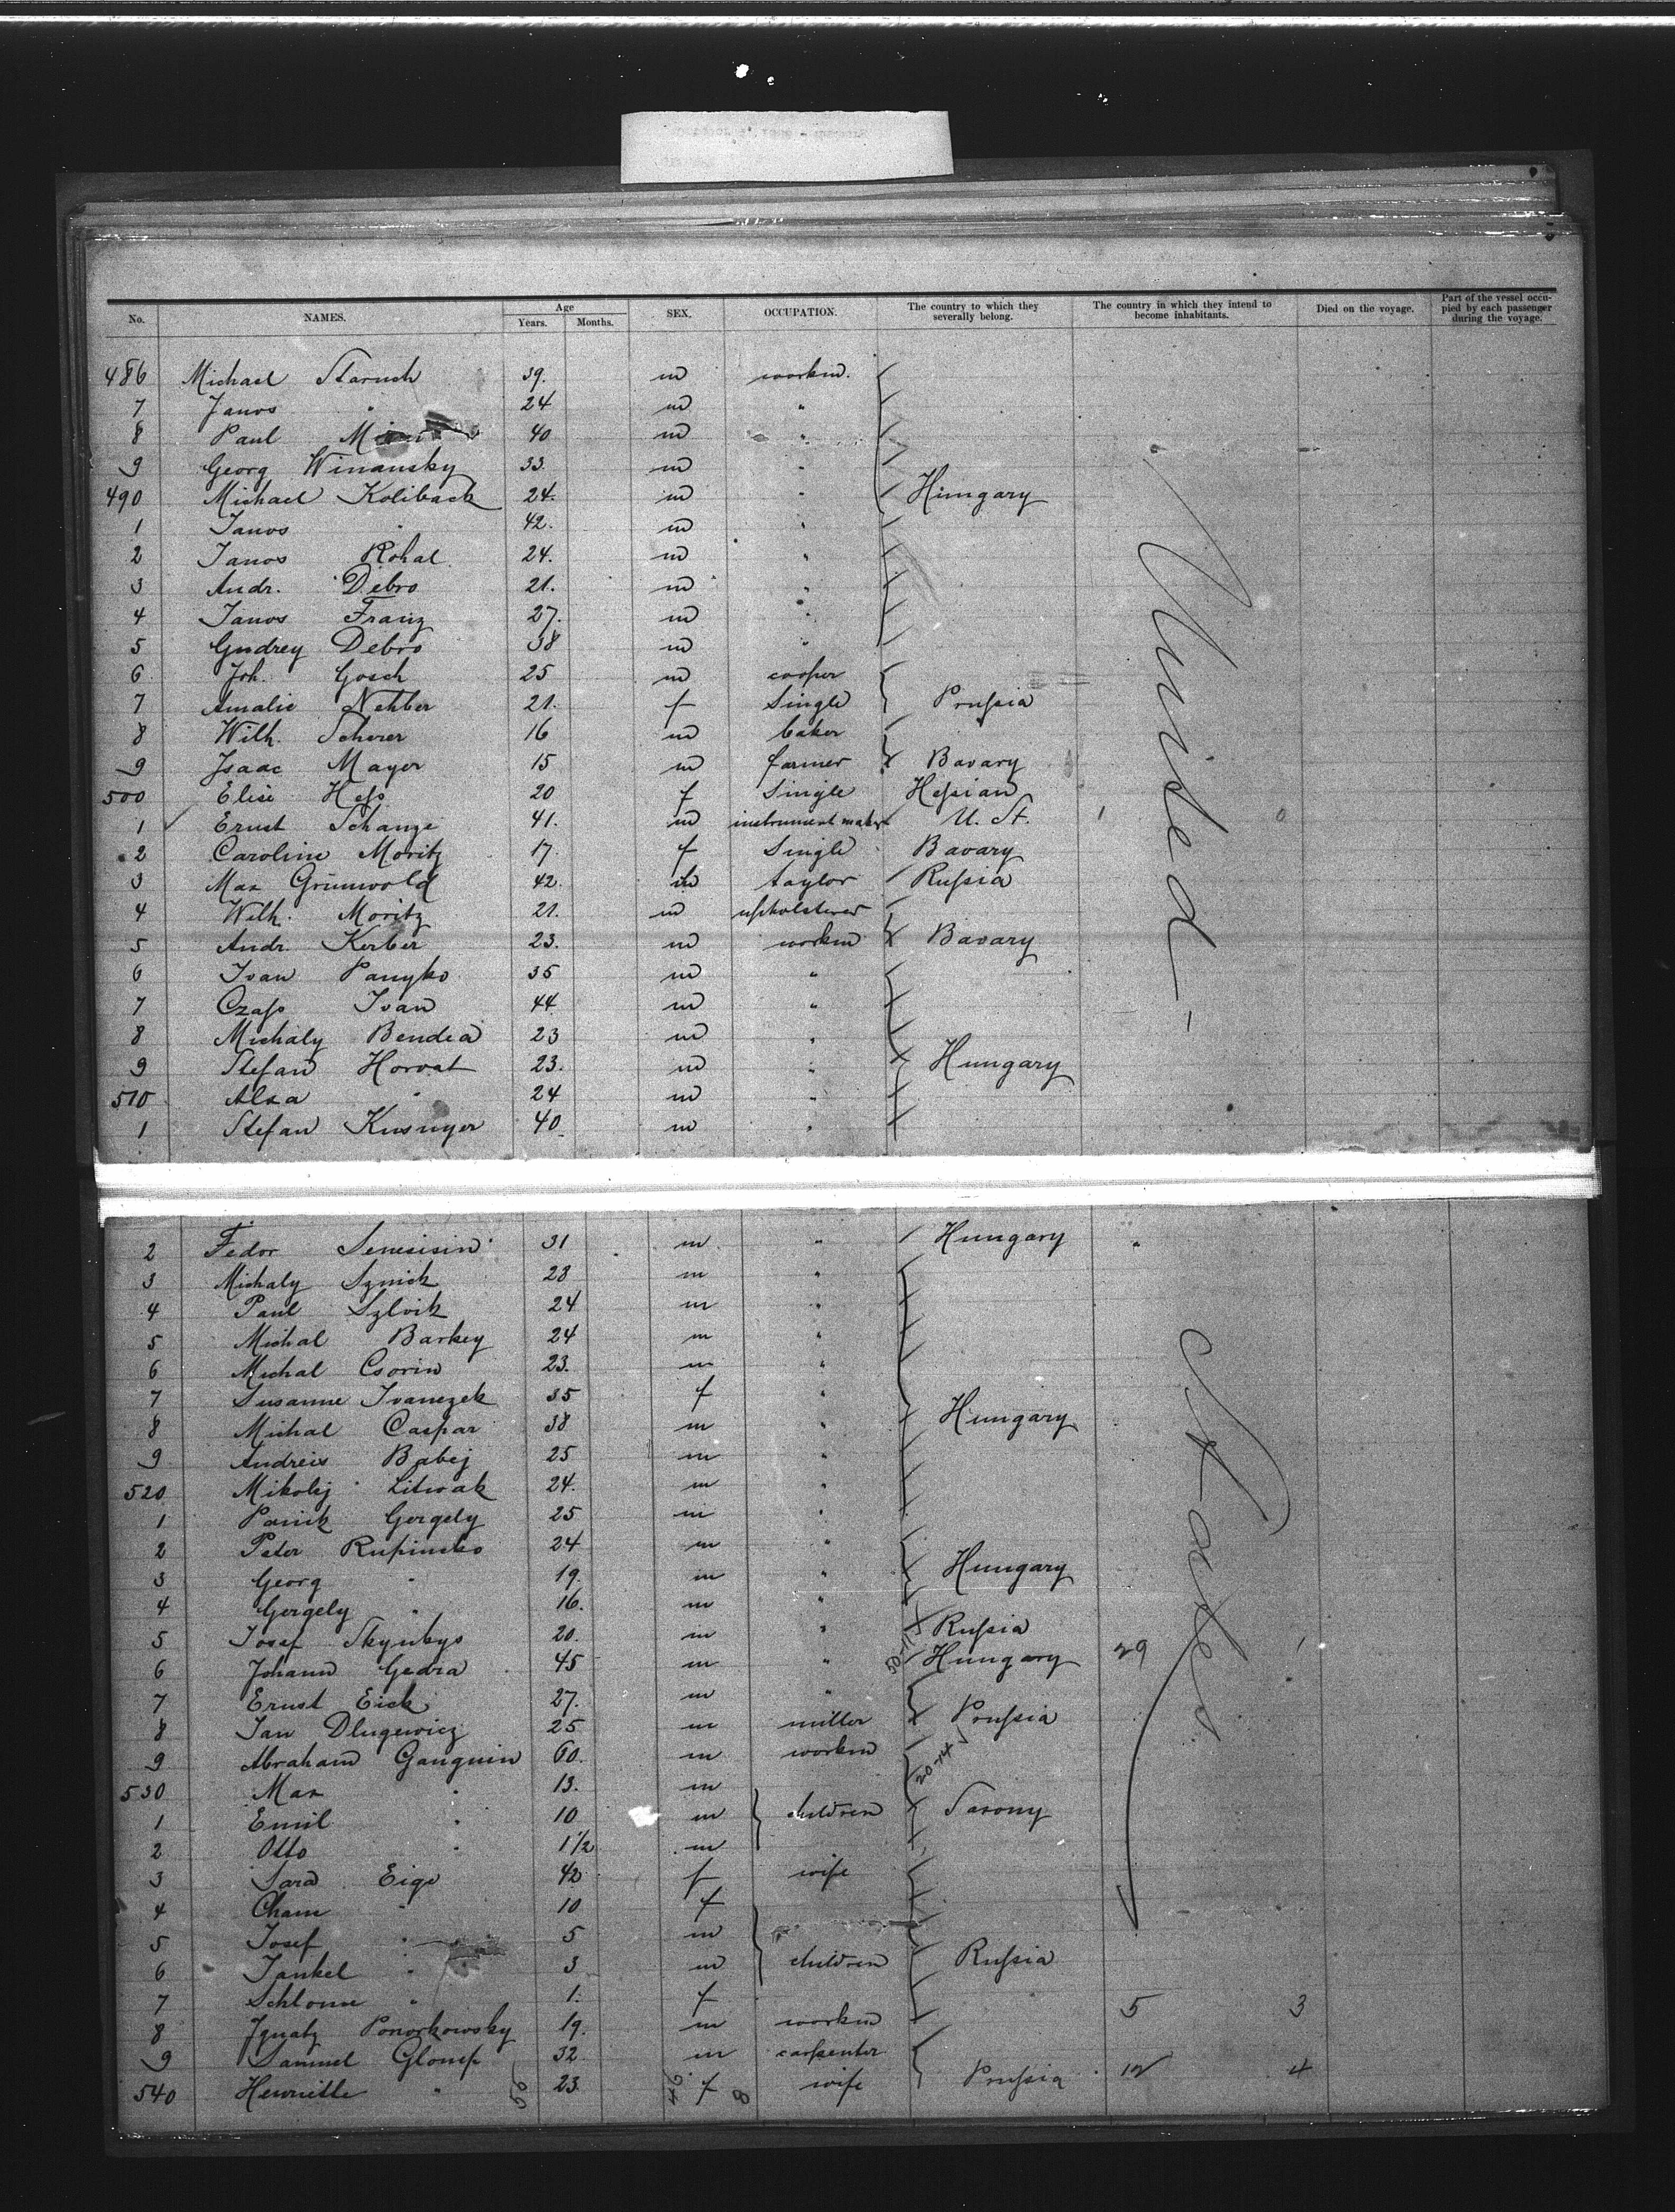 No. NAMES. Age Years. Months. SEX. OCCUPATION. The country to which they severally belong. The country in which they intend to become inhabitants. Died on the voyage. Part of the vessel occupied by each passenger during the voyage.
486 Michael Staruch 39. m workm.
7 Janos " 24 m "
8 Paul 40 m "
9 Georg Winansky 33. m "
490 Michael Koliback 24. m " Hungary
1 Janos " 42. m "
2 Janos Rohal 24. m "
3 Andr. Debro 21. m "
4 Janos Franz 27. m "
5 Gndrey Debro 38 m "
6 Joh. Gosch 25 m cooper
7 Amalie Nehber 21. f Single Prußia
8 Wilh. Scherer 16 m baker
9 Isaac Mayer 15 m farmer Bavary
500 Elise Heß 20 f Single Heßian
1 Ernst Schanze 41. m instrument maker U. St. 1 0
2 Caroline Moritz 17. f Single Bavary
3 Max Grünwold 42. m taylor Rußia
4 Wilh. Moritz 21. m upholsterer
5 Andr. Kerber 23. m workm Bavary
6 Ivan Panyko 35 m "
7 Czaß Ivan 44 m "
8 Michaly Bendea 23 m "
9 Stefan Horvat 23. m " Hungary
510 Alxa " 24 m "
1 Stefan Kusnyer 40 m "
United
2 Fedor 31 m " Hungary "
3 Michaly Sznick 28 m "
4 Paul Szlvik 24 m "
5 Michal Barkey 24 m "
6 Michal Csorin 23. m "
7 Susanne Ivanczek 35 f "
8 Michal Caspar 38 m " Hungary
9 Andreis Babej 25 m "
520 Mikolij Litwak 24. m "
1 Panik Gergely 25 m "
2 Peter 24 m "
3 Georg " 19. m " Hungary
4 Gergely " 16. m "
5 Josef 20. m " Rußia
6 Johann Gedra 45 m " Hungary 29 1
7 Ernst Eick 27. m "
8 Jan Dlugewicz 25 m miller Prußia
9 Abraham Ganguin 60. m workm
530 Max " 13. m
1 Emil " 10 m children Saxony
2 Otto " 1 1/2 m
3 Sara Eige 42 f wife
4 Chane " 10 f
5 Josef " 5 m
6 Jankel " 3 m children Rußia
7 Schlome " 1. f 5 3
8 Ignatz Ponorkowsky 19. m workm
9 Samuel 32. m carpenter
540 Henriette " 23. f wife Prußia 12 4
56 46 8
States